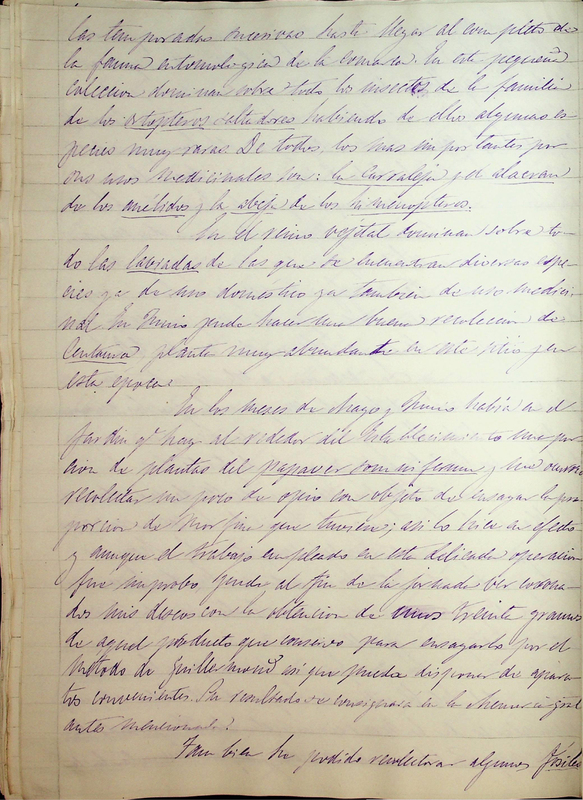 las temporadas sucesivas hasta llegar al completo de
la fauna entomológica de la comarca. En esta pequeña
colección dominan sobre todo los insectos de la familia
de los ortopteros saltadores habiendo de ellos algunas es
pecies muy raras. De todos, los mas importantes por
sus usos medicinales son: la carraleja y el alacran
de los y la abeja de los himenopteros.
En el reino vejetal dominan sobre to-
do las labiadas de las que se encuentran diversas espe
cies ya de uso doméstico ya tambien de uso medici-
nal. En Junio pude hacer una buena recoleccion de
Centaura planta muy abundante en este sitio y en
esta epoca.
En los meses de Mayo y Junio habia en el
Jardin q.e hay al rededor del Establecimiento una por
cion de plantas del papaver somniferum y me ocurrió
recolectar un poco de opio con objeto de ensayar la pro
porcion de Morfina que tuviese; asi lo hice en efecto
y aunque el trabajo empleado en esta delicada operacion
fue improbo pude al fin de la jornada ver corona-
dos mis deseos con la obtencion de unos treinta gramos
de aquel producto que conservo para ensayarlo por el
Método de Guillermond asi que pueda disponer de apara
tos convenientes. Su resultado se consignará en la Memoria gral
antes mencionada.
Tambien he podido recolectar algunos fosiles